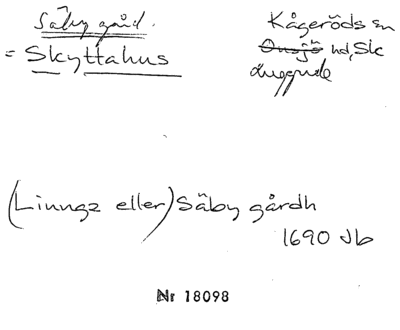 Säby gård.
= Skyttahus
Kågeröds sn
Onsjö hd, Sk
Luggude
(Linnga eller) Säby gårdh
1690 Jb
Nr 18098